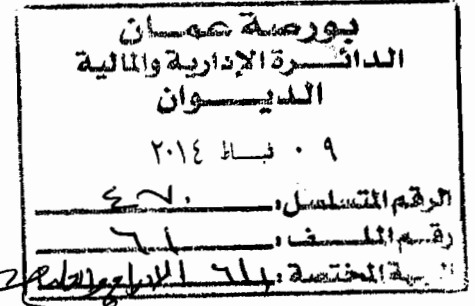 بورصة عمان
الدائرة الإدارية والمالية
الديوان
٠٩ شباط ٢٠١٤
الرقم المتسلسل:
رقم الملف:
الجهة المختصة: الإدراج